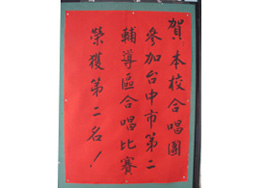 賀本校合唱團
參加台中市第二
輔導區合唱比賽
榮獲第二名！